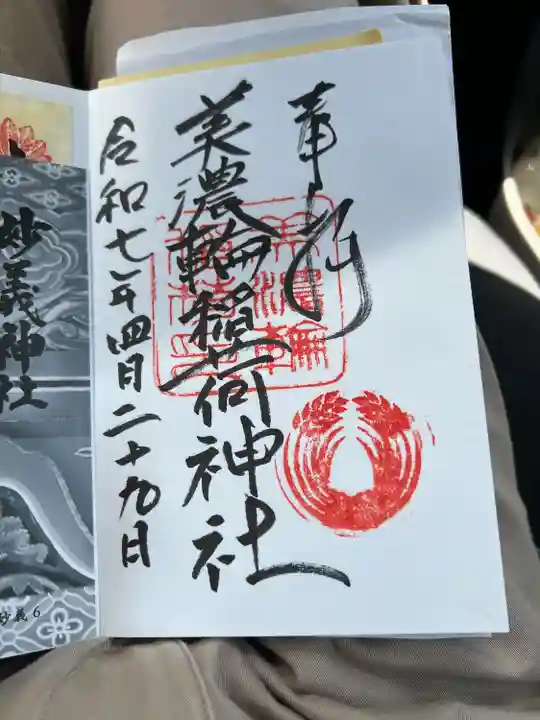 奉拝
美濃輪稲荷神社
令和七年四月二十九日
妙義神社
妙義 6